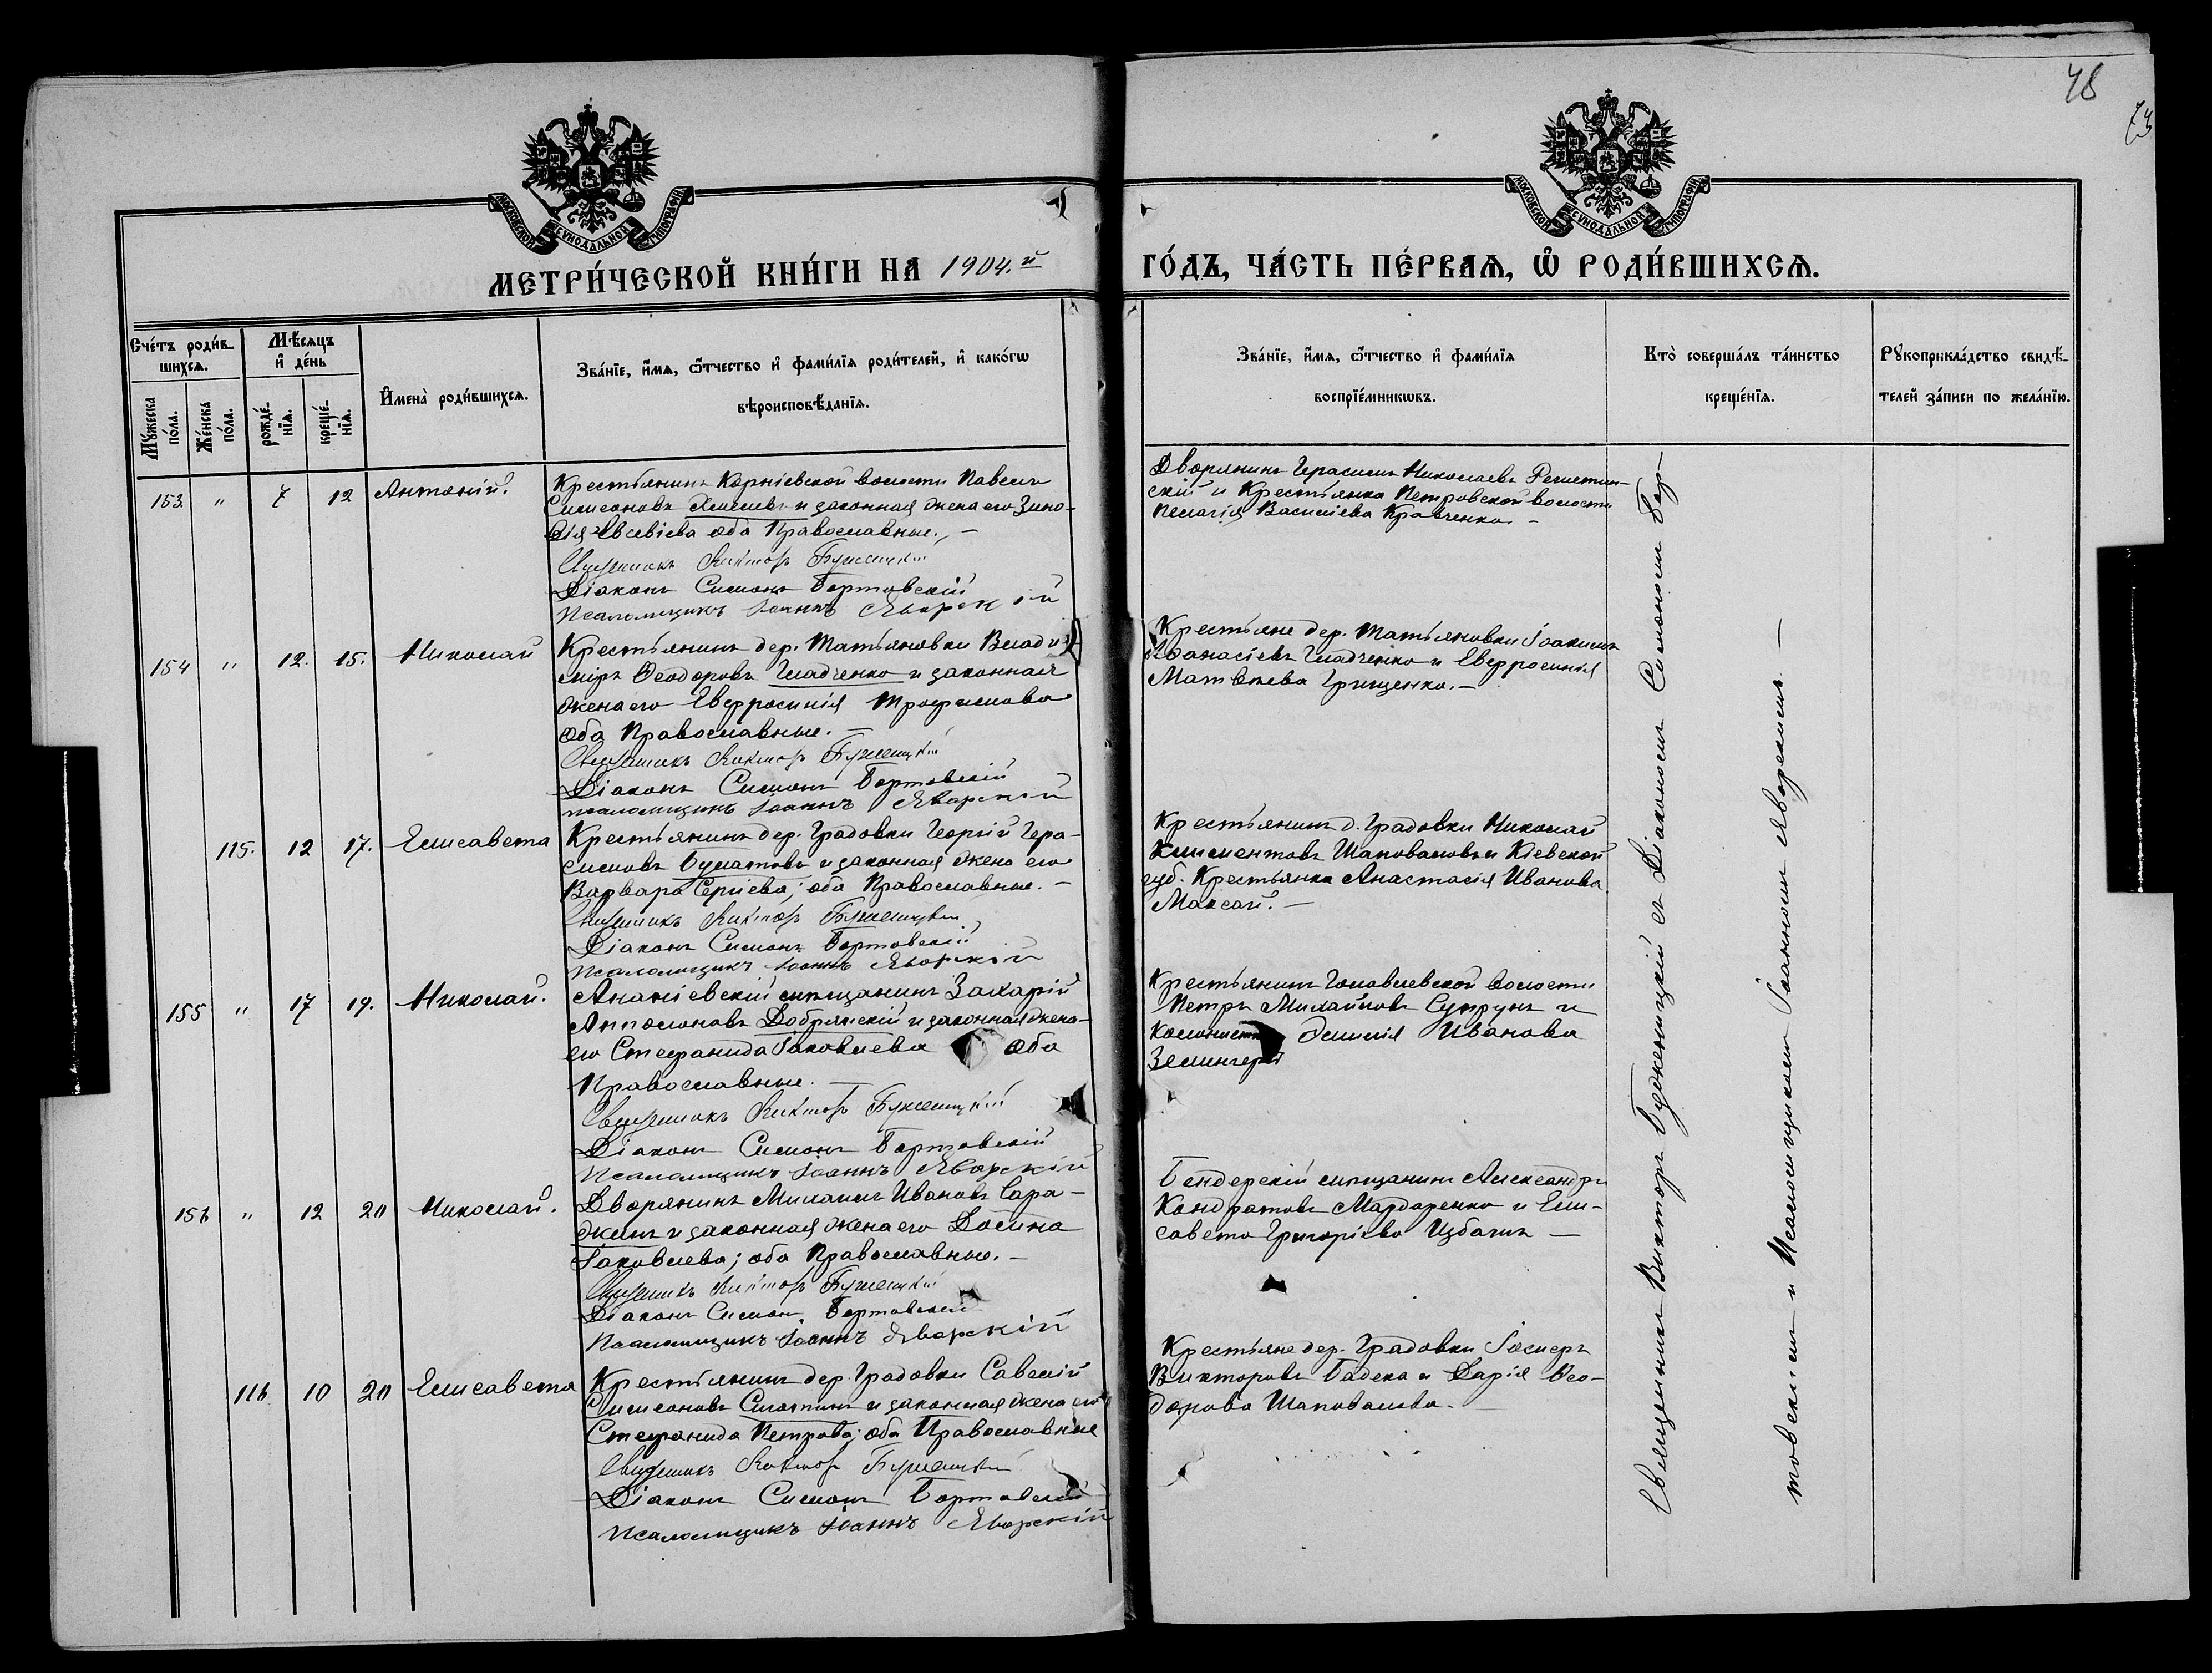 48
73
МОСКОВСКОЙ СѴНОДАЛЬНОЙ ТИПОГРАФІИ
МОСКОВСКОЙ СѴНОДАЛЬНОЙ ТИПОГРАФІИ
МЕТРИ́ЧЕСКОЙ КНИ́ГИ НА 1904.й
ГО́ДЪ, ЧА́СТЬ ПЕ́РВАѦ, Ѡ҆ РОДИ́ВШИХСѦ.
Сче́тъ роди́в-
шихсѧ.
Мꙋ́жеска по́ла.
Же́нска по́ла.
Мѣ́сѧцъ
и҆ де́нь
рожде́-
нїѧ.
креще́-
нїѧ.
И҆мена̀ роди́вшихсѧ.
Зва́нїе, и҆́мѧ, ѻ҆́тчество и҆ фами́лїѧ роди́телей, и҆ како́гѡ
вѣроисповѣ́данїѧ.
Зва́нїе, и҆́мѧ, ѻ҆́тчество и҆ фами́лїѧ
воспрїе́мникѡвъ.
Кто̀ соверша́лъ та́инство
креще́нїѧ.
Рꙋкоприкла́дство свидѣ́-
телей за́писи по жела́нїю.
153 " 7 12 Антоній.
Крестьянинъ Корніевской волости Павелъ
Симеоновъ и законная жена его Зино-
вія Евсевіева оба Православные. –
Священникъ Викторъ Буженицкій
Діаконъ Симонъ Бортовскій
Псаломщикъ Іоаннъ Яворскій
Дворянинъ Герасимъ Николаевъ Решетин-
скій и Крестьянка Петровской волости
Пелагія Василіева Кравченко. –
154 " 12. 15. Николай
Крестьянинъ дер. Татьяновки Влади-
міръ Ѳеодоровъ Гладченко и законная
жена его Евфросинія Трофимова
оба Православные. –
Священникъ Викторъ Буженицкій
Діаконъ Симонъ Бортовскій
псаломщикъ Іоаннъ Яворскій
Крестьяне дер. Татьяновки Іоакимъ
Аѳанасіевъ Гладченко и Евфросинія
Матвѣева Грищенко. –
115. 12 17. Елисавета
Крестьянинъ дер. Градовки Георгій Гера-
симовъ Булатовъ и законная жена его
Варвара Сергіева; оба Православные. –
Священникъ Викторъ Буженицкій
Діаконъ Симонъ Бортовскій
Псаломщикъ Іоаннъ Яворскій
Крестьянинъ д. Градовки Николай
Климентовъ Шаповаловъ и Кіевской
губ. Крестьянка Анастасія Иванова
Максай. –
155 " 17 19. Николай.
Ананіевскій мѣщанинъ Захарій
Антоновъ Добрянскій и законная жена
его Стефанида Іаковлева оба
Православные. –
Священникъ Викторъ Буженицкій
Діаконъ Симонъ Бортовскій
Псаломщикъ Іоаннъ Яворскій
Крестьянинъ Головлевской волости
Петръ Михайловъ Супрунъ и
Колонистка Эмилія Иванова
156 " 12 20 Николай.
Дворянинъ Михаилъ Ивановъ Сара-
жинъ и законная жена его Домна
Іаковлева; оба Православные. –
Священникъ Викторъ Буженицкій
Діаконъ Симонъ Бортовскій
Псаломщикъ Іоаннъ Яворскій
Бендерскій мѣщанинъ Александръ
Кондратовъ Мардаренко и Ели-
савета Григоріева Избашъ –
116 10 20 Елисавета
Крестьянинъ дер. Градовки Савелій
Симеоновъ и законная жена его
Стефанида Петрова; оба Православные
Священникъ Викторъ Буженицкій
Діаконъ Симонъ Бортовскій
Псаломщикъ Іоаннъ Яворскій
Крестьяне дер. Градовки Іосифъ
Викторовъ Бадека и Дарія Ѳео-
дорова Шаповалова. –
Священникъ Викторъ Буженицкій съ Діакономъ Симономъ Бор-
товскимъ и Псаломщикомъ Іоанномъ Яворскимъ. –